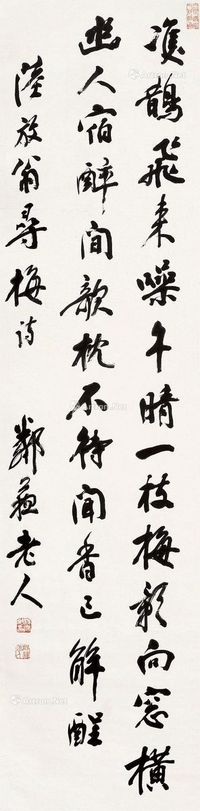 雙鵲飛來噪午晴一枝梅影向窓橫
幽人宿醉閒欹枕不待聞香已解酲
陸放翁尋梅詩 鄰蘇老人
Artron.Net